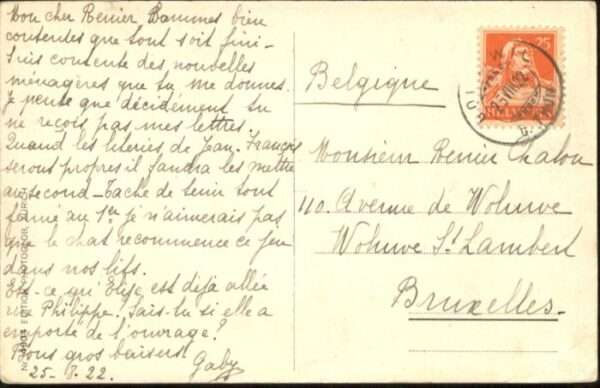 Mon cher Renier Sommes bien
contentes que tout soit fini -
Suis contente des nouvelles
ménagères que tu me donnes.
Je pense que décidement tu
ne reçois pas mes lettres.
Quand les literies de Jean-François
seront propres il faudra les mettre
au second - Tache de tenir tout
fermé au 1er je n'aimerais pas
que le chat recommence ce jeu
dans nos lits.
Est-ce qu'Elise est dejà allée
rue Philippe? Sais-tu si elle a
emporté de l'ouvrage?
Bons gros baisers!
Gaby
25-8.22.
Belgique
Monsieur Renier Chalon
110. Avenue de Woluwe
Woluwe St Lambert
Bruxelles.
25